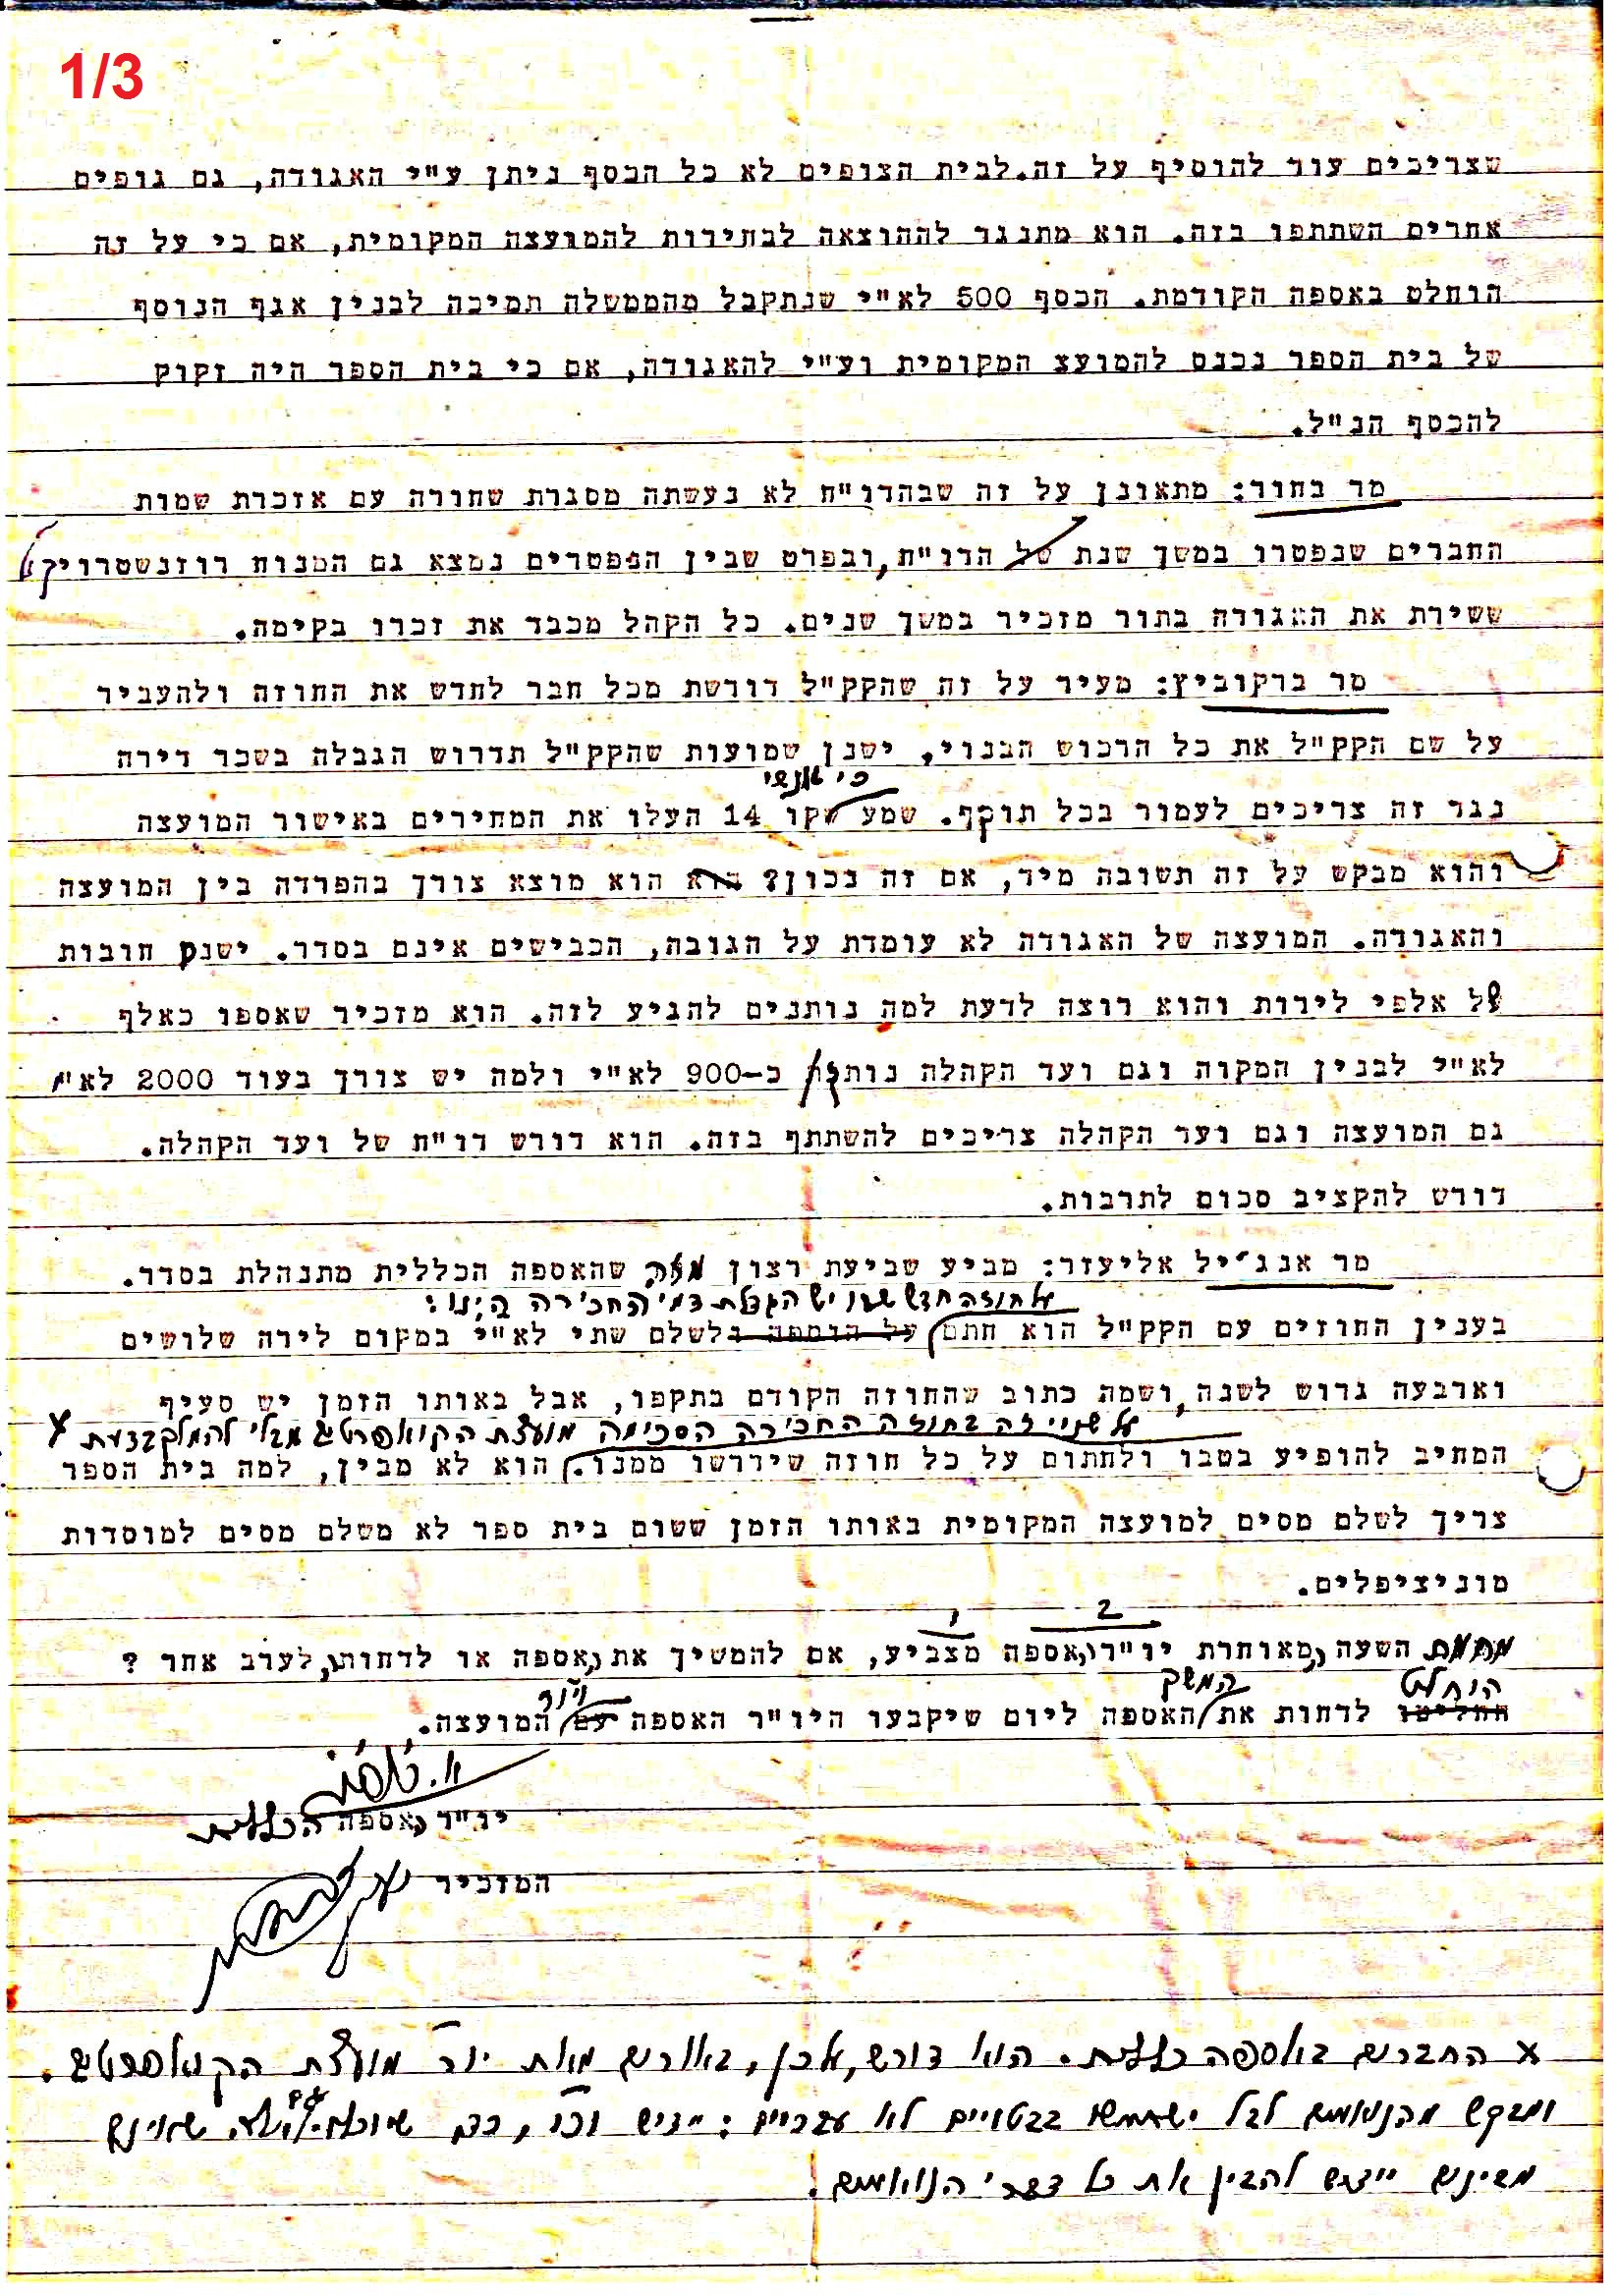 1/3
שצריכים עוד להוסיף על זה. לבית הצופים לא כל הכסף ניתן ע"י האגודה, גם גופים
אחרים השתתפו בזה. הוא מתנגד לההוצאה לבחירות להמועצה המקומית, אם כי על זה
הוחלט באספה הקודמת. הכסף 500 לא"י שנתקבל מהממשלה תמיכה לבנין אגף הנוסף
של בית הספר נכנס להמועצ המקומית וע"י להאגודה, אם כי בית הספר היה זקוק
להכסף הנ"ל.
מר בחור: מתאונן על זה שבהדו"ח לא נעשתה מסגרת שחורה עם אזכרת שמות
החברים שנפטרו במשך שנת של הדו"ח, ובפרט שבין הנפטרים נמצא גם המנוח רוזנשטרויק
ששירת את האגודה בתור מזכיר במשך שנים. כל הקהל מכבד את זכרו בקימה.
מר ברקוביץ: מעיר על זה שהקק"ל דורשת מכל חבר לחדש את החוזה ולהעביר
על שם הקק"ל את כל הרכוש הבנוי, ישנן שמועות שהקק"ל תדרוש הגבלה בשכר דירה
כי אנשי
נגד זה צריכים לעמוד בכל תוקף. שמע שקו 14 העלו את המחירים באישור המועצה
והוא מבקש על זה תשובה מיד, אם זה נכון? הוא הוא מוצא צורך בהפרדה בין המועצה
והאגודה. המועצה של האגודה לא עומדת על הגובה, הכבישים אינם בסדר. ישנם חובות
של אלפי לירות והוא רוצה לדעת למה נותנים להגיע לזה. הוא מזכיר שאספו כאלף
לא"י לבנין המקוה וגם ועד הקהלה נותן כ-900 לא"י ולמה יש צורך בעוד 2000 לא"י
גם המועצה וגם ועד הקהלה צריכים להשתתף בזה. הוא דורש דו"ח של ועד הקהלה.
דורש להקציב סכום לתרבות.
מר אנג'יל אליעזר: מביע שביעת רצון מזה שהאספה הכללית מתנהלת בסדר.
על חוזה חדש שבו יש הגבלת דמי החכירה היינו:
בענין החוזים עם הקק"ל הוא חתם על הוספה ולשלם שתי לא"י במקום לירה שלושים
וארבעה גרוש לשנה, ושמה כתוב שהחוזה הקודם בתקפו, אבל באותו הזמן יש סעיף
על שנוי זה בחוזה החכירה הסכימה מועצת הקואפרטיב מבלי להמלך בדעת x
המחיב להופיע בטבו ולחתום על כל חוזה שידרשו ממנו. הוא לא מבין, למה בית הספר
צריך לשלם מסים למועצה המקומית באותו הזמן ששום בית ספר לא משלם מסים למוסדות
מוניציפלים.
1 2
מחמת השעה המאוחרת יו"ר האספה מצביע, אם להמשיך את האספה או לדחותה לערב אחר ?
הוחלט המשך ויור
החליטו לדחות את האספה ליום שיקבעו היו"ר האספה עם המועצה.
יו"ר האספה הכללית
המזכיר
x החברים באספה כללית. הוא דורש, על כן, באורים מאת יור מועצת הקואפרטיב.
ומבקש מהנואמים לבל ישתמשו בבטויים לא עבריים: יידיש וכו',
מבינים יידיש להבין את כל דברי הנואמים.